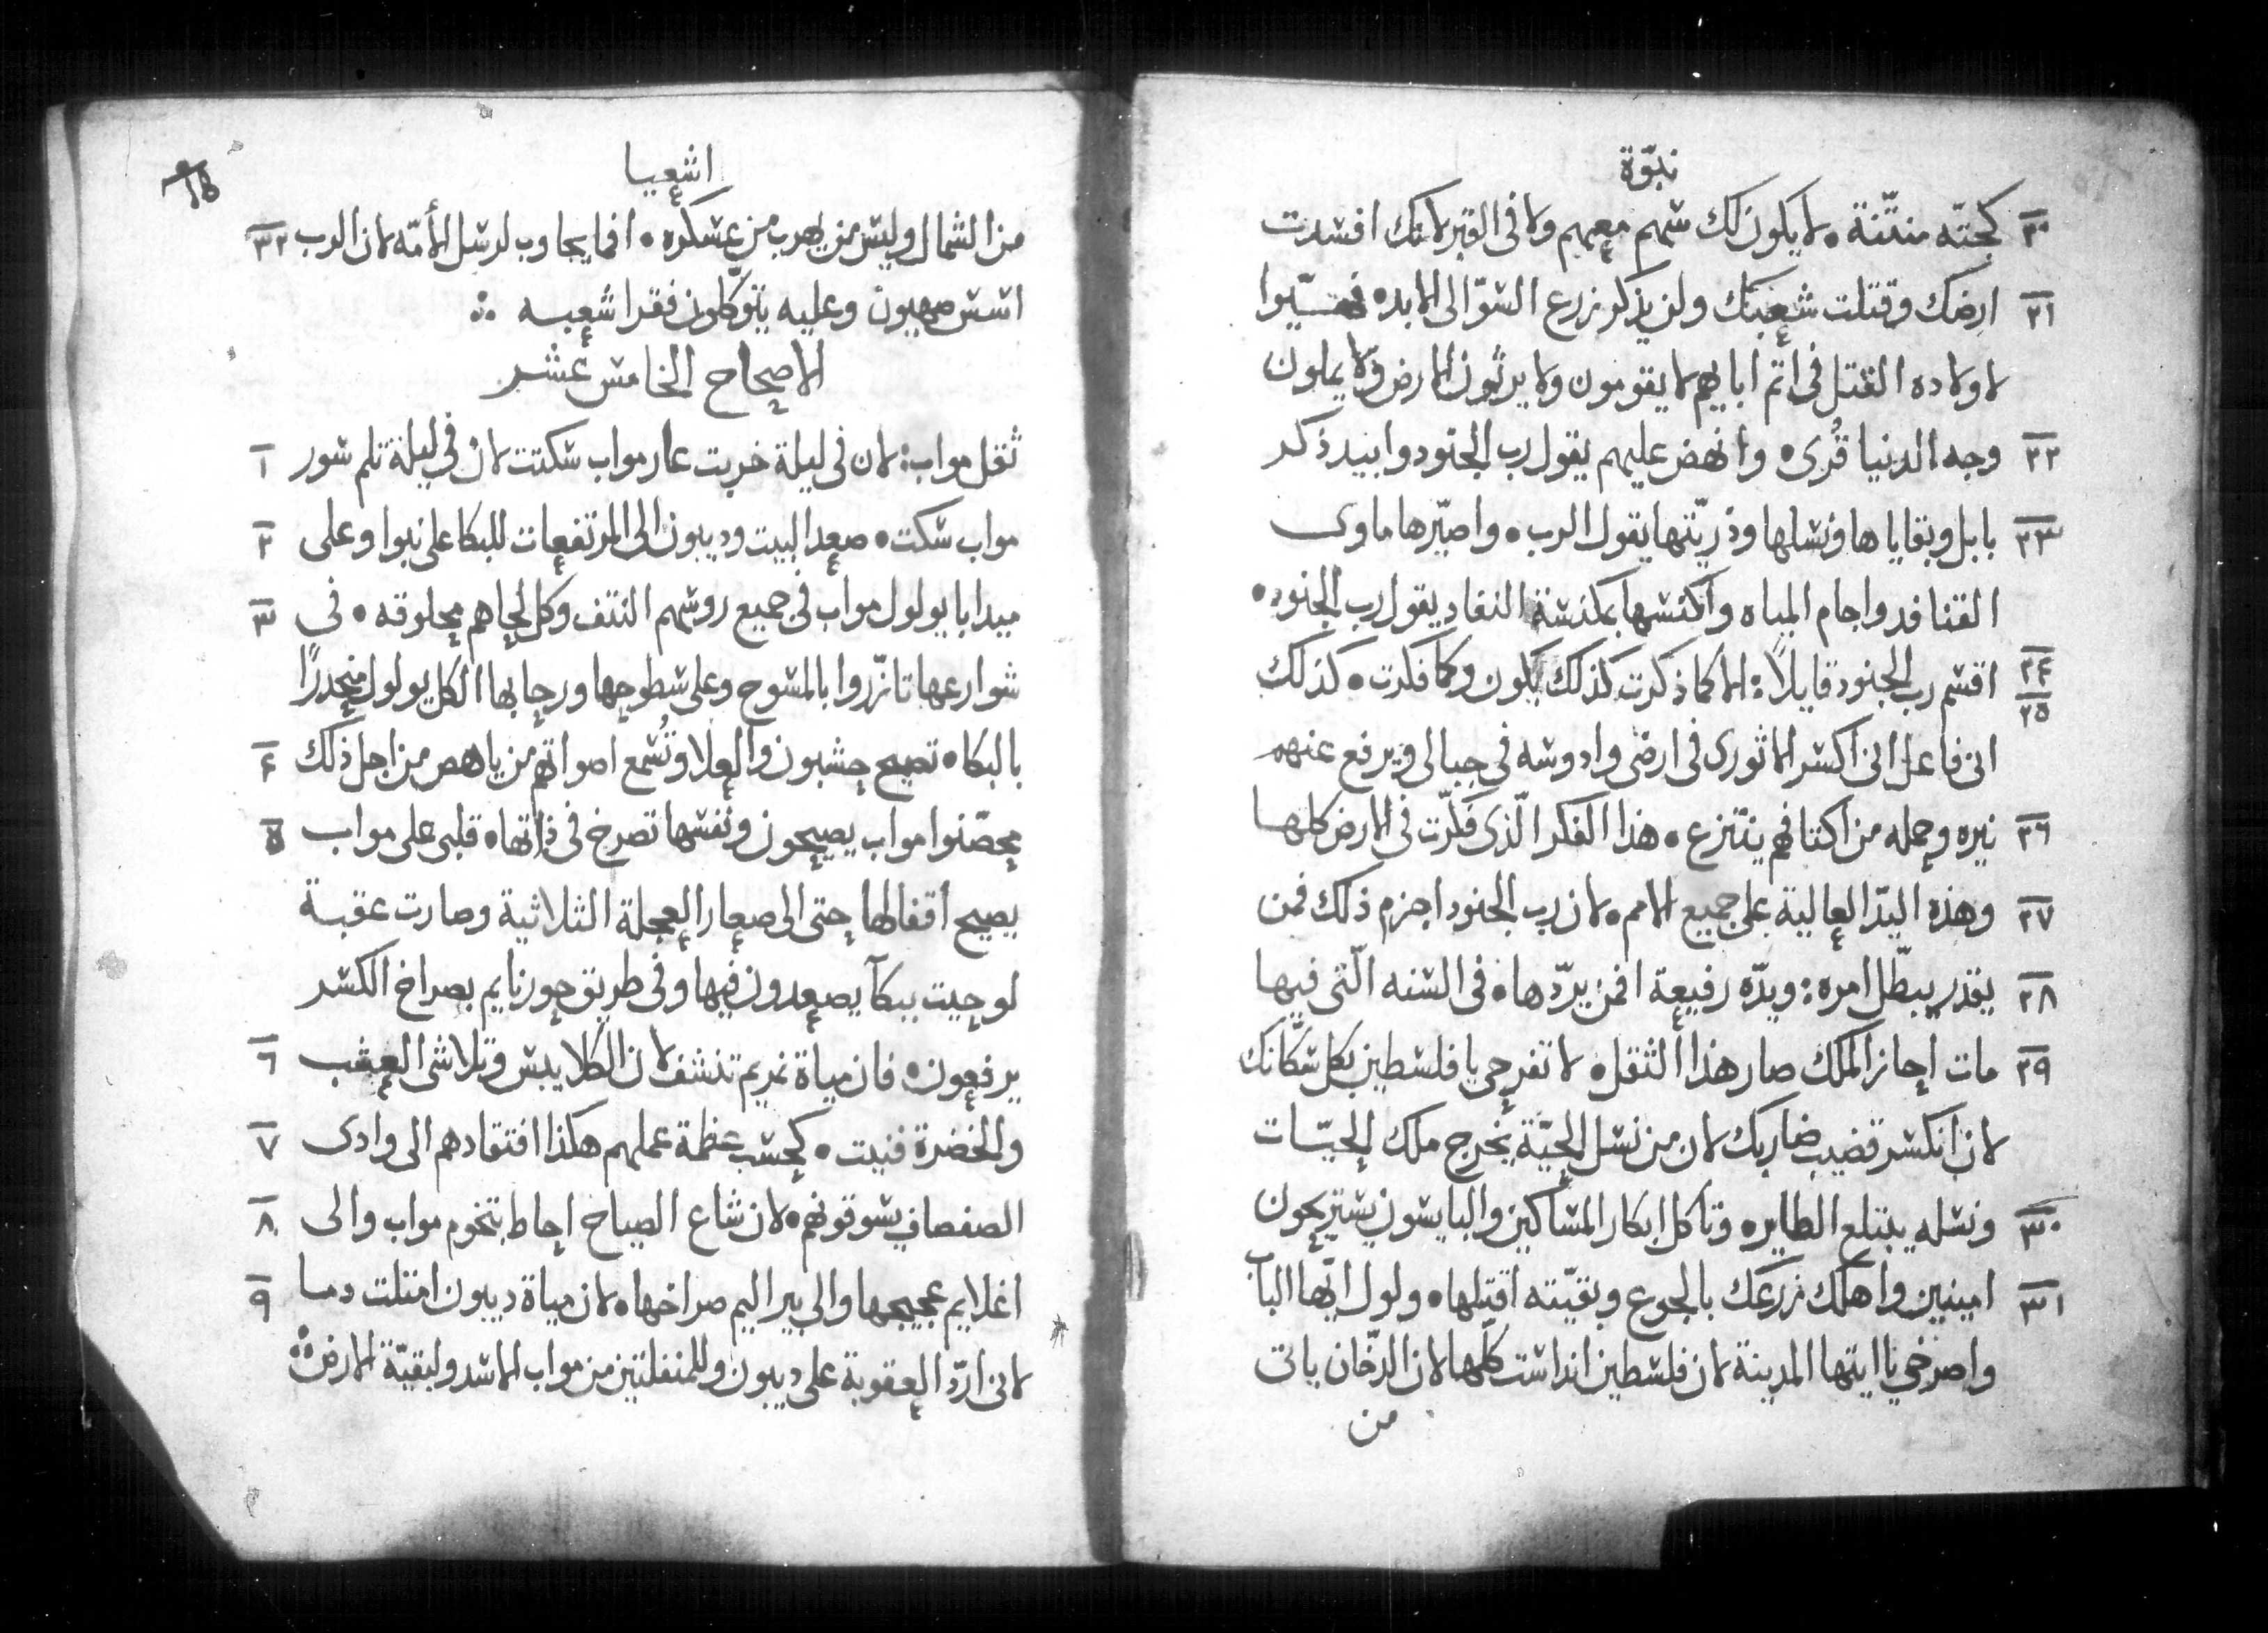 نبوّة
٢٠ كجتّه منتّنة • لا يكون لك شهم معهم ولا في القبر لانك افسدت
٢١ ارضك وقتلت شعبك ولن يذكر زرع السوّ الى الابد •
لاولاده القتل في اتم اباىهم لا يقومون ولا يرثون الارض ولا يملون
٢٢ وجه الدنيا قُرى • وانهض عليهم يقول رب الجنود وابيد ذكر
٢٣ بابل وبقاياها ونسلها وذريّتها يقول الرب • واصيّرها ماوى
القنافد واجام المياه واكنسها بمكنسة النفاد يقول رب الجنود •
٢٤ ٢٥ اقسم رب الجنود قايلاً : الا كما ذكرت كذلك يكون وكما فكرت • كذلك
انى فاعل انى اكسر الاثورى في ارضى وادوسه في جبالى ويرفع عنهم
٢٦ نيره وحمله من اكتافهم ينتزع • هذا الفكر الّذى فكّرت في الارض كلها
٢٧ وهذه اليدّ العالية على جميع الامم • لان رب الجنود اجزم ذلك فمن
٢٨ يقدر يبطّل امره : ويدّه رفيعة افمن يردّها • في السنه الّتى فيها
٢٩ مات احاز الملك صار هذا الثقل • لا تفرحى يا فلسطين بكل سكّانك
لان انكسر قضيب ضاربك لان من نسل الحيّة يخرج ملك الحيّات
٣٠ ونسله يبتلع الطاير • وتاكل ابكار المساكين والبايسون يستريحون
٣١ امينين واهلك زرعك بالجوع وبقيّته اقتلها • ولول ايّها الباب
واصرخى يا ايتها المدينة لان فلسطين انداست كلّها لان الدخّان ياتى
من
اشعيا
من الشمال وليس من يهرب من عسكره • افما يجاوب لرسل الأمّه لان الرب ٣٢
اسس صهيون وعليه يتوكّلون فقرا شعبه ∴
الاصحاح الخامس عشر
ثقل مواب : لان في ليلة خربت عار مواب سكتت لان في ليلة ثلم سور ١
مواب سكت • صعد البيت وديبون الى المرتفعات للبكا على نبوا وعلى ٢
ميدابا يولول مواب في جميع روسهم النتف وكل لحاهم محلوقه • في ٣
شوارعها تازّروا بالمسوح وعلى سطوحها ورحابها الكل يولول منحدرًا
بالبكا • تصيح حشبون والعلا وتُسمع اصواتهم من ياهص من اجل ذلك ٤
محصّنوا مواب يصيحون ونفسها تصرخ في ذاتها • قلبى على مواب ٥
يصيح اقفالها حتى الى صعار العجلة الثلاثية وصارت عقبة
لوحيت ببكآ يصعدون فيها وفي طريق حورنايم بصراخ الكسر
يرفعون • فان مياة نمريم تنشف لان الكلا يبس وتلاشى العشب ٦
والخضرة فنيت • كحسب عظمة عملهم هكذا افتقادهم الى وادى ٧
الصفصاف يسوقونهم • لان شاع الصياح احاط بتخوم مواب والى ٨
اغلايم عجيجها والى بير اليم صراخها • لان مياة ديبون امتلت دما ٩
لانى ارّد العقوبة على ديبون وللمنفلتين من مواب الاسد ولبقيّة الارض ∴